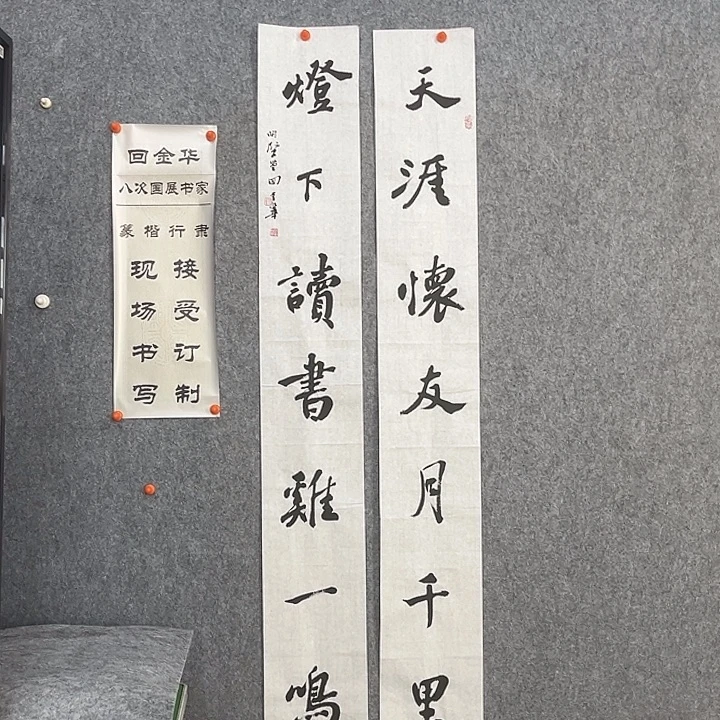 天涯懷友月千里
燈下讀書雞一鳴
回金华
八次国展书家
篆楷行隶
现场书写
接受订制